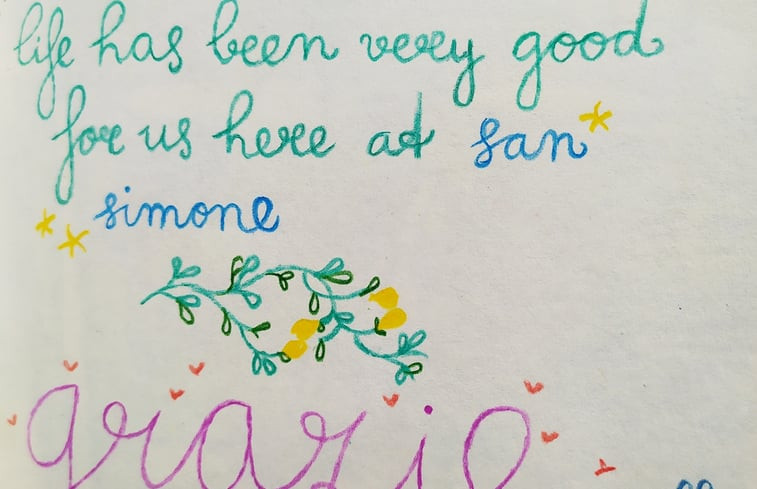 life has been very good
for us here at san
simone
grazie